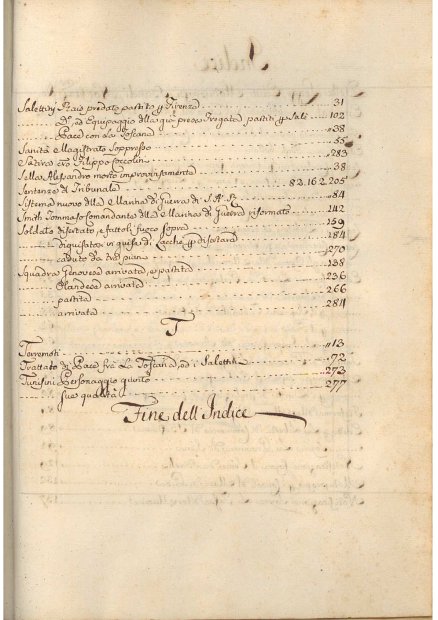 Salettini Rais predato partito p Firenze 31
Do, ed Equipaggio della già presa Fregata partiti p Salè 102
Pace con La Toscana 38
Sanità Magistrato Soppresso 55
Satira c̃tro Filippo Coccolini 283
Sella Alessandro morto improvvisamente 38
Sentenze di Tribunale 82. 162. 205
Sistema nuovo della Marina di Guerra di S. A. R. 84
Smith Tommaso Comandante della Marina di Guerra riformato 142
Soldato disertato, e fattoli fuoco sopra 159
in guisa di p disertare 138
caduto da 270
Squadra Genovese arrivata, e partita 184
Olandese arrivata 236
partita 266
arrivata 281
T
Terremoti 13
Trattato di Pace fra La Toscana, ed i Salettini 72
Tunisini Personaggio giunto 273
sue qualità 277
Fine dell'Indice